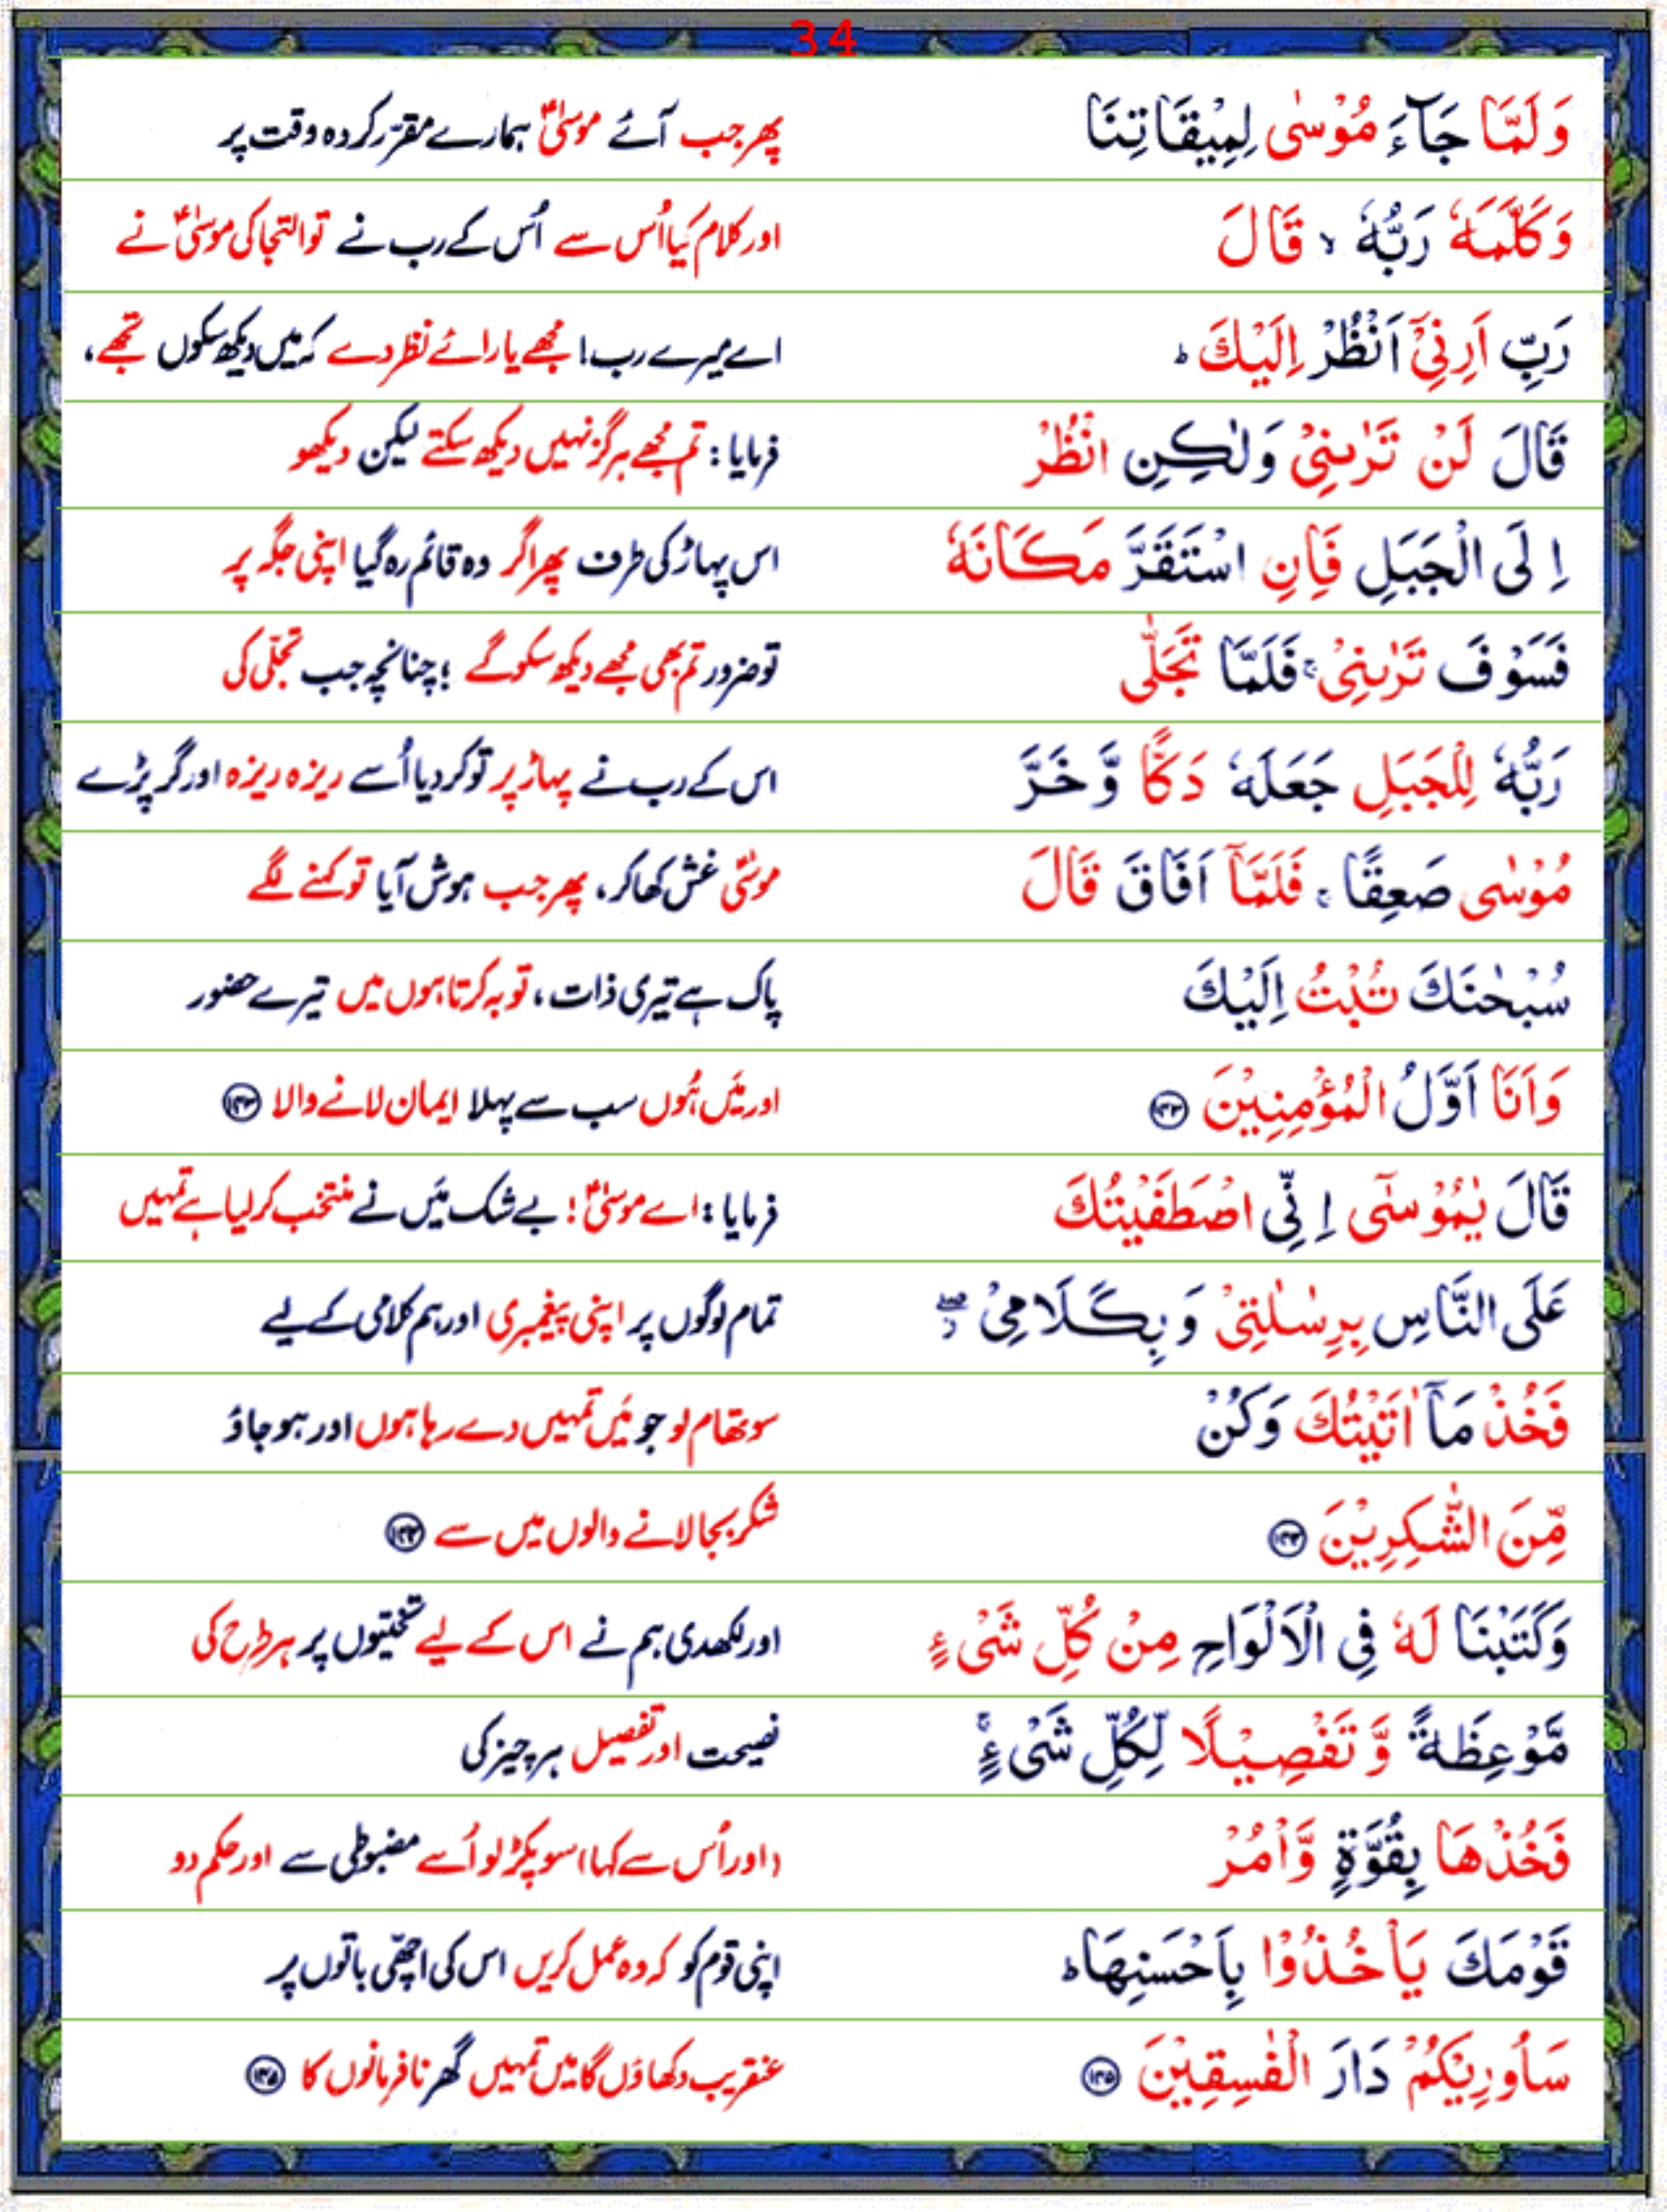 34
وَلَمَّا جَآءَ مُوْسٰى لِمِيْقَاتِنَا پھر جب آئے موسیٰؑ ہمارے مقرّر کردہ وقت پر
وَكَلَّمَهٗ رَبُّهٗ ۙ قَالَ اور کلام کیا اُس سے اُس کے رب نے تو التجا کی موسیٰؑ نے
رَبِّ اَرِنِىْٓ اَنْظُرْ اِلَيْكَ ؕ اے میرے رب! مجھے یارائے نظر دے کہ میں دیکھ سکوں تجھے،
قَالَ لَنْ تَرٰىنِىْ وَلٰكِنِ انْظُرْ فرمایا: تم مجھے ہرگز نہیں دیکھ سکتے لیکن دیکھو
اِلَى الْجَبَلِ فَاِنِ اسْتَقَرَّ مَكَانَهٗ اس پہاڑ کی طرف پھر اگر وہ قائم رہ گیا اپنی جگہ پر
فَسَوْفَ تَرٰىنِىْ ۚ فَلَمَّا تَجَلّٰى تو ضرور تم بھی مجھے دیکھ سکو گے ؛ چنانچہ جب تجلّی کی
رَبُّهٗ لِلْجَبَلِ جَعَلَهٗ دَكًّا وَّ خَرَّ اس کے رب نے پہاڑ پر تو کر دیا اُسے ریزہ ریزہ اور گر پڑے
مُوْسٰى صَعِقًا ۚ فَلَمَّآ اَفَاقَ قَالَ موسٰیؑ غش کھا کر، پھر جب ہوش آیا تو کہنے لگے
سُبْحٰنَكَ تُبْتُ اِلَيْكَ پاک ہے تیری ذات، توبہ کرتا ہوں میں تیرے حضور
وَاَنَا اَوَّلُ الْمُؤْمِنِيْنَ ۱۴۳ اور مَیں ہُوں سب سے پہلا ایمان لانے والا ۱۴۳
قَالَ يٰمُوْسٰٓى اِنِّى اصْطَفَيْتُكَ فرمایا: اے موسیٰؑ! بے شک مَیں نے منتخب کر لیا ہے تمہیں
عَلَى النَّاسِ بِرِسٰلٰتِىْ وَ بِكَلَامِىْ ۖ تمام لوگوں پر اپنی پیغمبری اور ہم کلامی کے لیے
فَخُذْ مَآ اٰتَيْتُكَ وَكُنْ سو تھام لو جو مَیں تمہیں دے رہا ہوں اور ہو جاؤ
مِّنَ الشّٰكِرِيْنَ ۱۴۴ شکر بجا لانے والوں میں سے ۱۴۴
وَكَتَبْنَا لَهٗ فِى الْاَلْوَاحِ مِنْ كُلِّ شَىْءٍ اور لکھ دی ہم نے اس کے لیے تختیوں پر ہر طرح کی
مَّوْعِظَةً وَّ تَفْصِيْلًا لِّكُلِّ شَىْءٍ ۚ نصیحت اور تفصیل ہر چیز کی
فَخُذْهَا بِقُوَّةٍ وَّاْمُرْ (اور اُس سے کہا) سو پکڑ لو اُسے مضبوطی سے اور حکم دو
قَوْمَكَ يَاْخُذُوْا بِاَحْسَنِهَا ؕ اپنی قوم کو کہ وہ عمل کریں اس کی اچھّی باتوں پر
سَاُورِيْكُمْ دَارَ الْفٰسِقِيْنَ ۱۴۵ عنقریب دکھاؤں گا میں تمہیں گھر نافرمانوں کا ۱۴۵